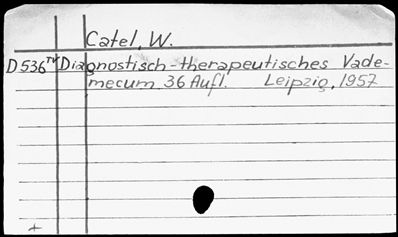 Catel, W.
D536rv Diagnostisch-therapeutisches Vade-
mecum 36 Aufl. Leipzig, 1957
+